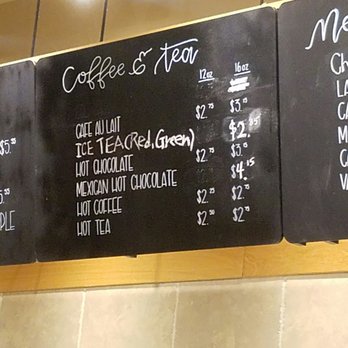 Coffee & tea
12oz 16oz
CAFE AU LAIT $2.75 $3.15
ICE TEA (Red, Green) $2.95
HOT CHOCOLATE $2.75 $3.15
MEXICAN HOT CHOCOLATE $4.15
HOT COFFEE $2.25 $2.75
HOT TEA $2.50 $2.75
$5.
PLE
Me
Ch
LA
CA
M
C
VA